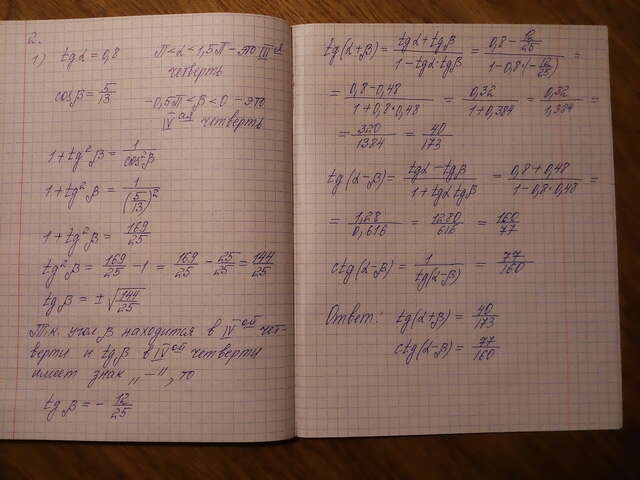 2.
1) tg α = 0,8 π < α < 1,5π – это III я
четверть
cos β = 5/13 -0,5π < β < 0 – это
IV ая четверть
1 + tg² β = 1/cos² β
1 + tg² β = 1/(5/13)²
1 + tg² β = 169/25
tg² β = 169/25 - 1 = 169/25 - 25/25 = 144/25
tg β = ± √144/25
Т.к. угол β находится в IV ой чет-
верти и tg β в IV ой четверти
имеет знак „–", то
tg β = - 12/25
tg(α+β) = (tgα + tgβ)/(1 - tgα·tgβ) = (0,8 - 12/25)/(1 - 0,8·(-12/25)) =
= (0,8 - 0,48)/(1 + 0,8·0,48) = 0,32/(1 + 0,384) = 0,32/1,384 =
= 320/1384 = 40/173
tg(α-β) = (tgα - tgβ)/(1 + tgα tgβ) = (0,8 + 0,48)/(1 - 0,8·0,48) =
= 1,28/0,616 = 1280/616 = 160/77
ctg(α-β) = 1/tg(α-β) = 77/160
Ответ: tg(α+β) = 40/173
ctg(α-β) = 77/160